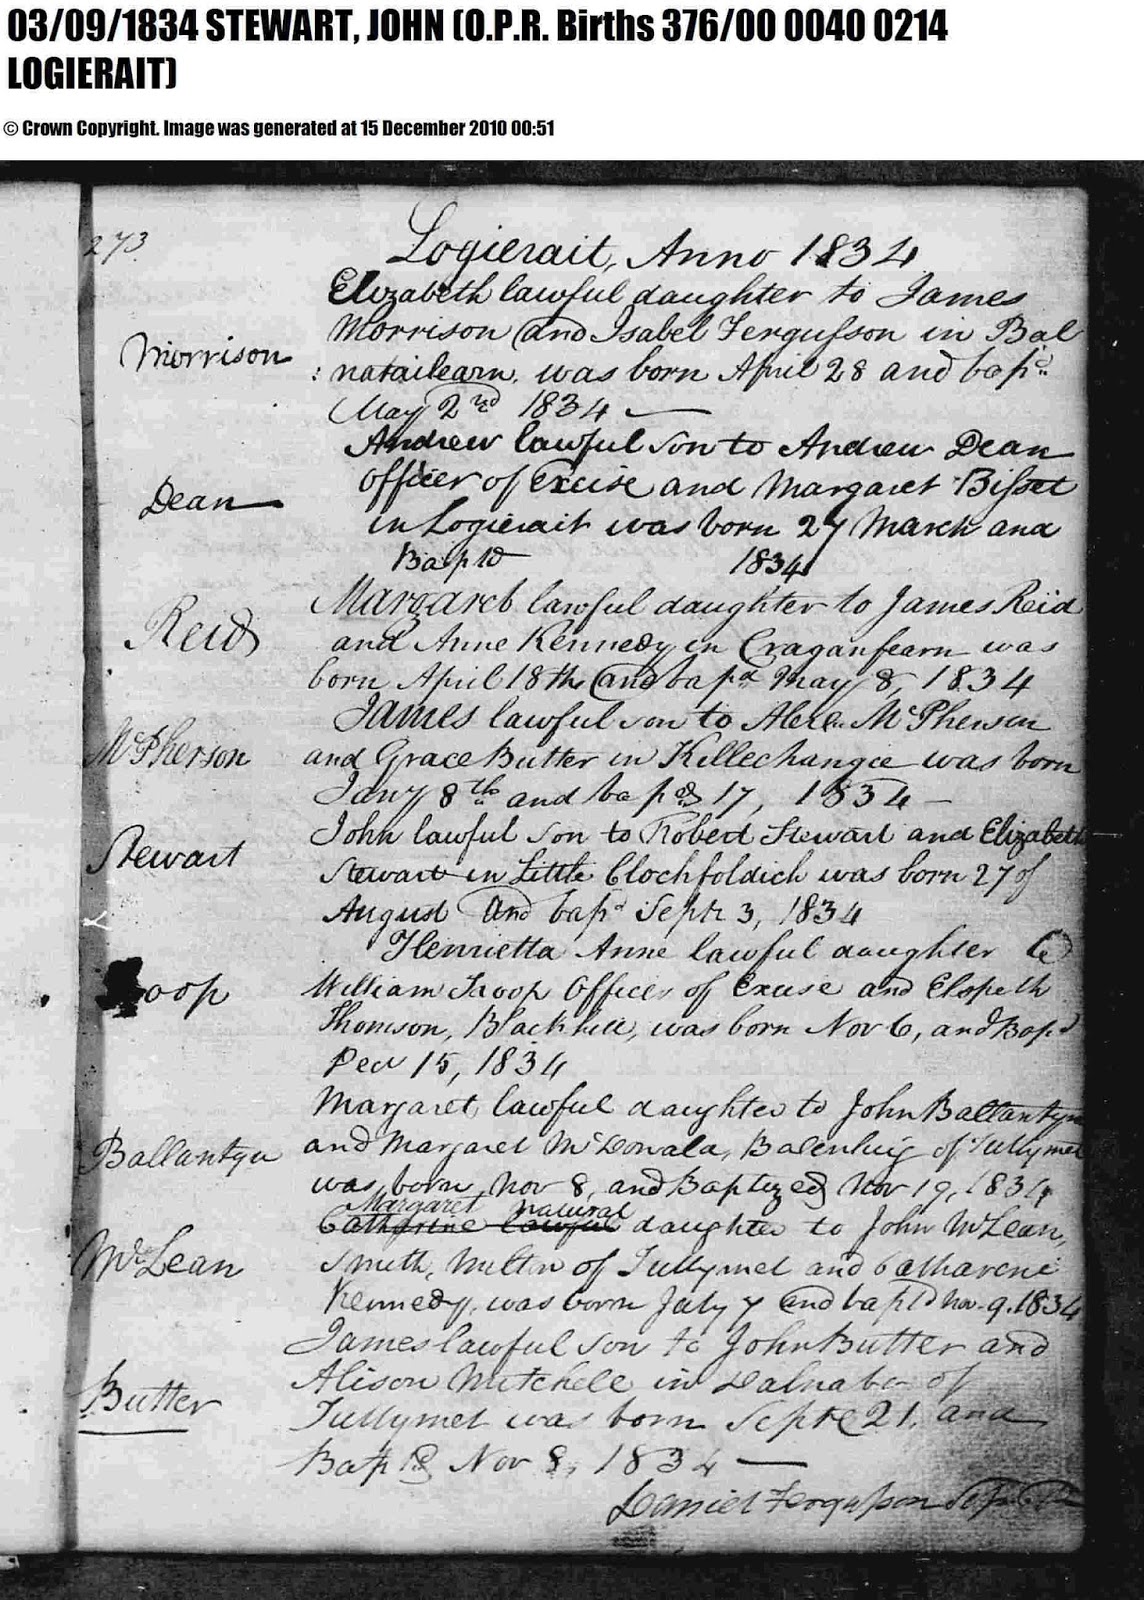 03/09/1834 STEWART, JOHN (O.P.R. Births 376/00 0040 0214
LOGIERAIT)
© Crown Copyright. Image was generated at 15 December 2010 00:51
273.
Logierait, Anno 1834
Morrison
Elizabeth lawful daughter to James
Morrison and Isabel Fergusson in Bal
: natailearn. was born April 28 and bapd.
May 2nd 1834 —
Dean
Andrew lawful son to Andrew Dean
Officer of Excise and Margaret Bisset
in Logierait was born 27 March and
Baptd 1834
Reid
Margaret lawful daughter to James Reid
and Anne Kennedy in Craganfearn was
born April 18th and bapd May 8, 1834
McPherson
James lawful son to Alexr. McPherson
and Grace Butter in Killechangie was born
Jany 8th and bapd 17, 1834 —
Stewart
John lawful son to Robert Stewart and Elizabeth
Stewart in Little Clochfoldich was born 27 of
August and bapd Septr 3, 1834
oop
Henrietta Anne lawful daughter to
William Troop Officer of Excise and Elspeth
Thomson, Blackhill, was born Nov 6, and Bapd
Decr 15, 1834
Ballantyn
Margaret, lawful daughter to John Ballantyn
and Margaret McDonald, of Tullymet
was born Nov 8, and Baptized Nov 19, 1834
McLean
Margaret natural
Catharine lawful daughter to John McLean,
Smith, Milton of Tullymet and Catharene
Kennedy, was born July 7 and baptd Nov. 9. 1834
Butter
James lawful son to John Butter and
Alison Mitchell in Dalnabo of
Tullymet was born Septr 21, and
Baptd Nov 8, 1834 —
Daniel Fergusson